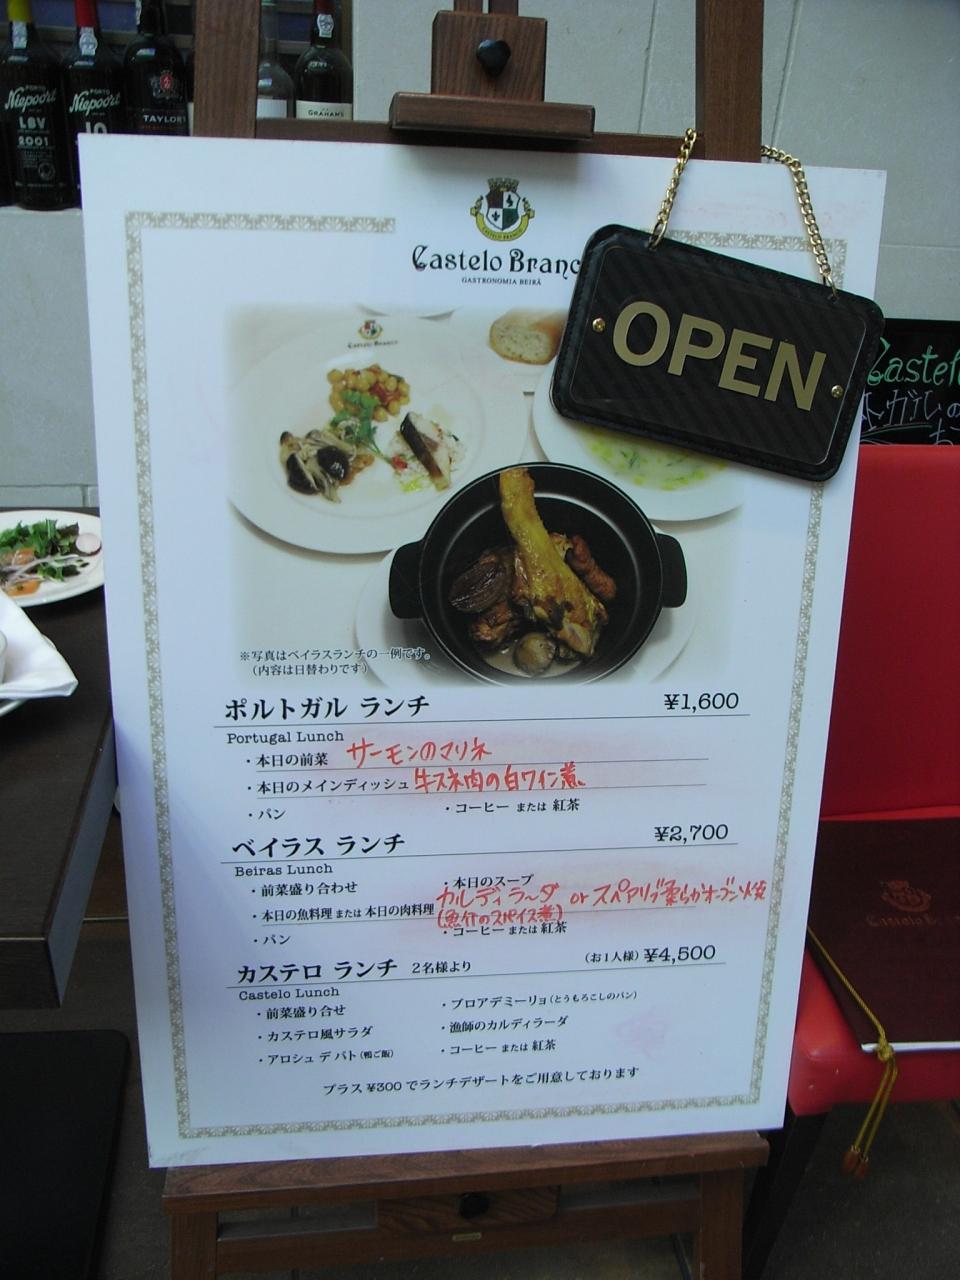 Niepoort
LBV
2001
Niepoort
10
TAYLOR'S
GRAHAM'S
CASTELO BRANCO
Castelo Branc
GASTRONOMIA BEIRÃ
OPEN
Castelo Branco
※写真はベイラスランチの一例です。
(内容は日替わりです)
ポルトガル ランチ ¥1,600
Portugal Lunch
・本日の前菜 サーモンのマリネ
・本日のメインディッシュ 牛スネ肉の白ワイン煮
・パン ・コーヒー または 紅茶
ベイラス ランチ ¥2,700
Beiras Lunch
・前菜盛り合わせ ・本日のスープ
・本日の魚料理 または 本日の肉料理 カルディラーダ or スペアリブ柔らかオーブン焼
(魚介のスパイス煮)
・パン ・コーヒー または 紅茶
カステロ ランチ 2名様より (お1人様) ¥4,500
Castelo Lunch
・前菜盛り合せ ・ブロアデミーリョ(とうもろこしのパン)
・カステロ風サラダ ・漁師のカルディラーダ
・アロシュ デ パト(鴨ご飯) ・コーヒー または 紅茶
プラス ¥300 でランチデザートをご用意しております
Castel
トガルの
Castelo Bran